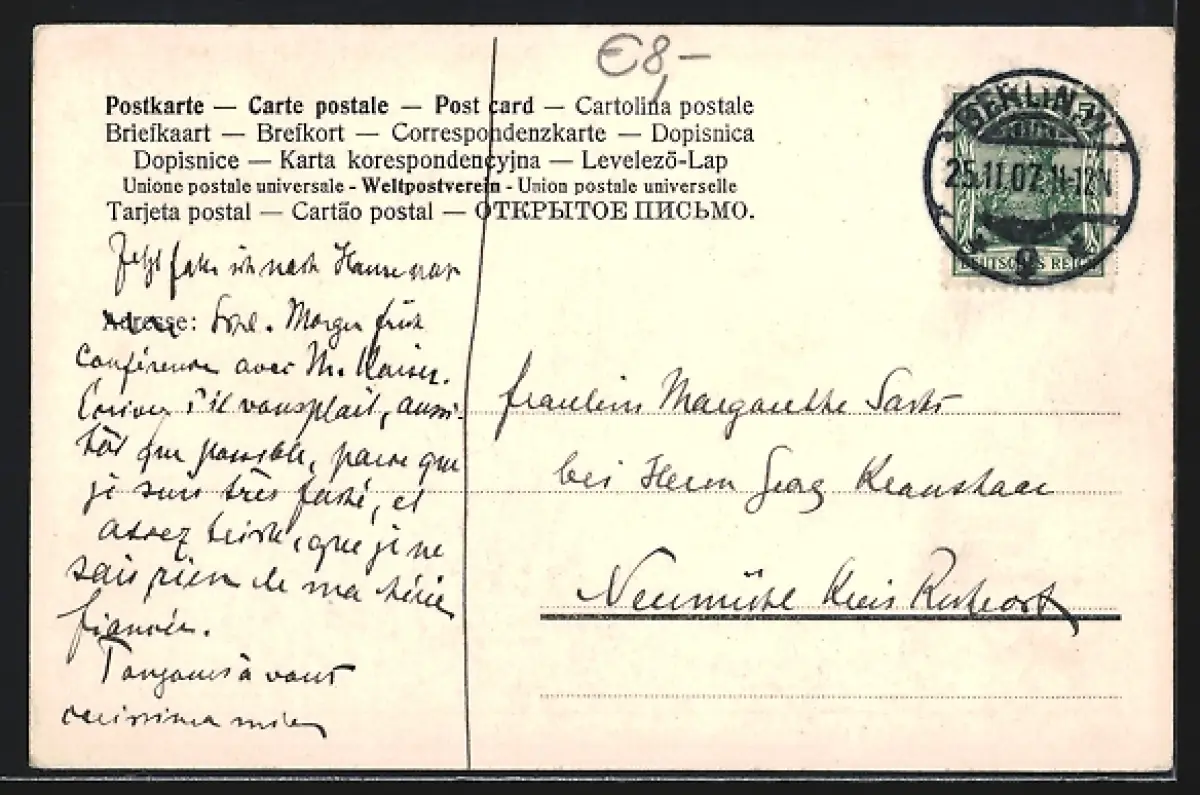 €8,-
Postkarte — Carte postale — Post card — Cartolina postale
Briefkaart — Brefkort — Correspondenzkarte — Dopisnica
Dopisnice — Karta korespondencyjna — Levelező-Lap
Unione postale universale - Weltpostverein - Union postale universelle
Tarjeta postal — Cartão postal — ОТКРЫТОЕ ПИСЬМО.
BERLIN
25.11.07. 11-12V
DEUTSCHES REICH
Jetzt fahre ich nach Hause
Adresse: Morgen früh
Conférence avec M. Kaiser.
Ecrivez s'il vous plait, aussi-
tôt que possible, parce que
je suis très faché, et
assez triste, que je ne
sais rien de ma chérie
fiancée.
Toujours à vous
carissima mia
Fräulein Margarethe
bei Herrn Georg Kranshaar
Neumühl Kreis Ruhrort